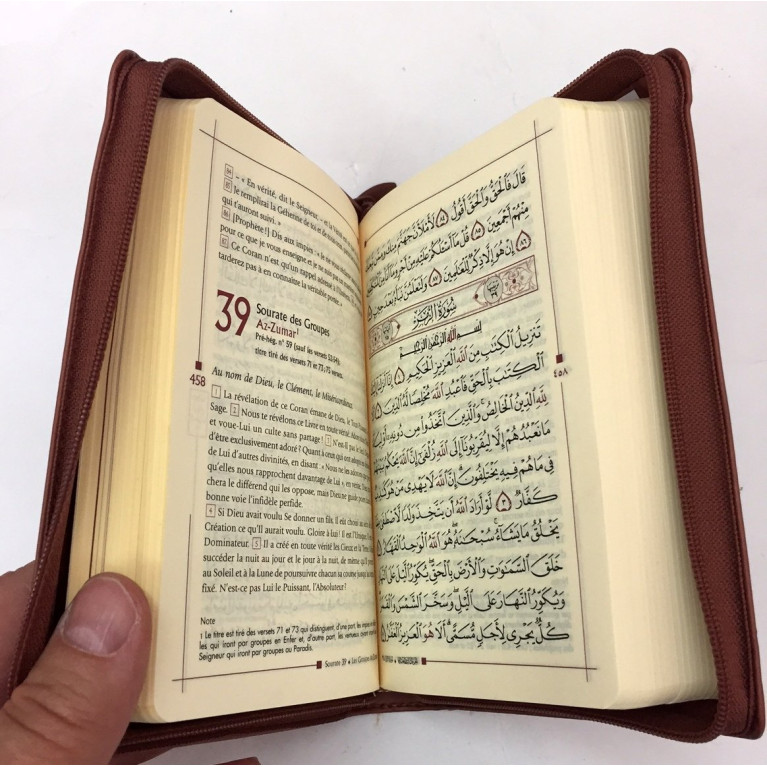 84 – « En vérité, dit le Seigneur, – et la vérité
85 Je remplirai la Géhenne de toi et de
qui t'auront suivi. »
86 [Prophète !] Dis aux impies : « Je ne vous
pour ce que je vous enseigne et je ne suis pas
87 Ce Coran n'est qu'un rappel adressé à
tarderez pas à en connaître la véritable portée. »
39
Sourate des Groupes
Az-Zumar¹
Pré-hég. n° 59 (sauf les versets 52-54);
titre tiré des versets 71 et 73; 75 versets.
458
Au nom de Dieu, le Clément, le Miséricordieux
1 La révélation de ce Coran émane de Dieu, le Tout-Puissant
Sage. 2 Nous te révélons ce Livre en toute vérité. Adore
et voue-Lui un culte sans partage ! 3 N'est-Il pas le Seul
d'être exclusivement adoré ? Quant à ceux qui ont adopté
de Lui d'autres divinités, en disant : « Nous ne les adorons
qu'elles nous rapprochent davantage de Lui », en vérité, Dieu
chera le différend qui les oppose, mais Dieu ne guide point
bonne voie l'infidèle perfide.
4 Si Dieu avait voulu Se donner un fils, Il eût choisi au
Création ce qu'Il aurait voulu. Gloire à Lui ! Il est l'Unique
Dominateur. 5 Il a créé en toute vérité les Cieux et la Terre
succéder la nuit au jour et le jour à la nuit, de même qu'Il
au Soleil et à la Lune de poursuivre chacun sa course jusqu'
fixé. N'est-ce pas Lui le Puissant, l'Absoluteur !
Note
1 Le titre est tiré des versets 71 et 73 qui distinguent, d'une part, les impies
les qui iront par groupes en Enfer et, d'autre part, les vertueux
Seigneur qui iront par groupes au Paradis.
Sourate 39 • Les Groupes
قَالَ فَٱلْحَقُّ وَٱلْحَقَّ أَقُولُ ٨٤ لَأَمْلَأَنَّ جَهَنَّمَ مِنكَ وَمِمَّن
مِنْهُمْ أَجْمَعِينَ ٨٥ قُلْ مَآ أَسْـَٔلُكُمْ عَلَيْهِ مِنْ أَجْرٍ وَمَآ أَنَا۠ مِنَ
٨٦ إِنْ هُوَ إِلَّا ذِكْرٌ لِّلْعَٰلَمِينَ ٨٧ وَلَتَعْلَمُنَّ نَبَأَهُۥ بَعْدَ حِينٍ
سُورَةُ الزُّمَرِ
٣٩
بِسْمِ ٱللَّهِ ٱلرَّحْمَٰنِ ٱلرَّحِيمِ
٤٥٨
تَنزِيلُ ٱلْكِتَٰبِ مِنَ ٱللَّهِ ٱلْعَزِيزِ ٱلْحَكِيمِ ١ إِنَّآ أَنزَلْنَآ
ٱلْكِتَٰبَ بِٱلْحَقِّ فَٱعْبُدِ ٱللَّهَ مُخْلِصًا لَّهُ ٱلدِّينَ ٢
لِلَّهِ ٱلدِّينُ ٱلْخَالِصُ وَٱلَّذِينَ ٱتَّخَذُوا۟ مِن دُونِهِۦٓ
مَا نَعْبُدُهُمْ إِلَّا لِيُقَرِّبُونَآ إِلَى ٱللَّهِ زُلْفَىٰٓ إِنَّ ٱللَّهَ يَحْكُمُ
فِى مَا هُمْ فِيهِ يَخْتَلِفُونَ إِنَّ ٱللَّهَ لَا يَهْدِى مَنْ هُوَ
كَفَّارٌ ٣ لَّوْ أَرَادَ ٱللَّهُ أَن يَتَّخِذَ وَلَدًا لَّٱصْطَفَىٰ
يَخْلُقُ مَا يَشَآءُ سُبْحَٰنَهُۥ هُوَ ٱللَّهُ ٱلْوَٰحِدُ ٱلْقَهَّارُ ٤
خَلَقَ ٱلسَّمَٰوَٰتِ وَٱلْأَرْضَ بِٱلْحَقِّ يُكَوِّرُ ٱلَّيْلَ عَلَى ٱلنَّهَارِ
وَيُكَوِّرُ ٱلنَّهَارَ عَلَى ٱلَّيْلِ وَسَخَّرَ ٱلشَّمْسَ وَٱلْقَمَرَ
كُلٌّ يَجْرِى لِأَجَلٍ مُّسَمًّى أَلَا هُوَ ٱلْعَزِيزُ ٱلْغَفَّٰرُ